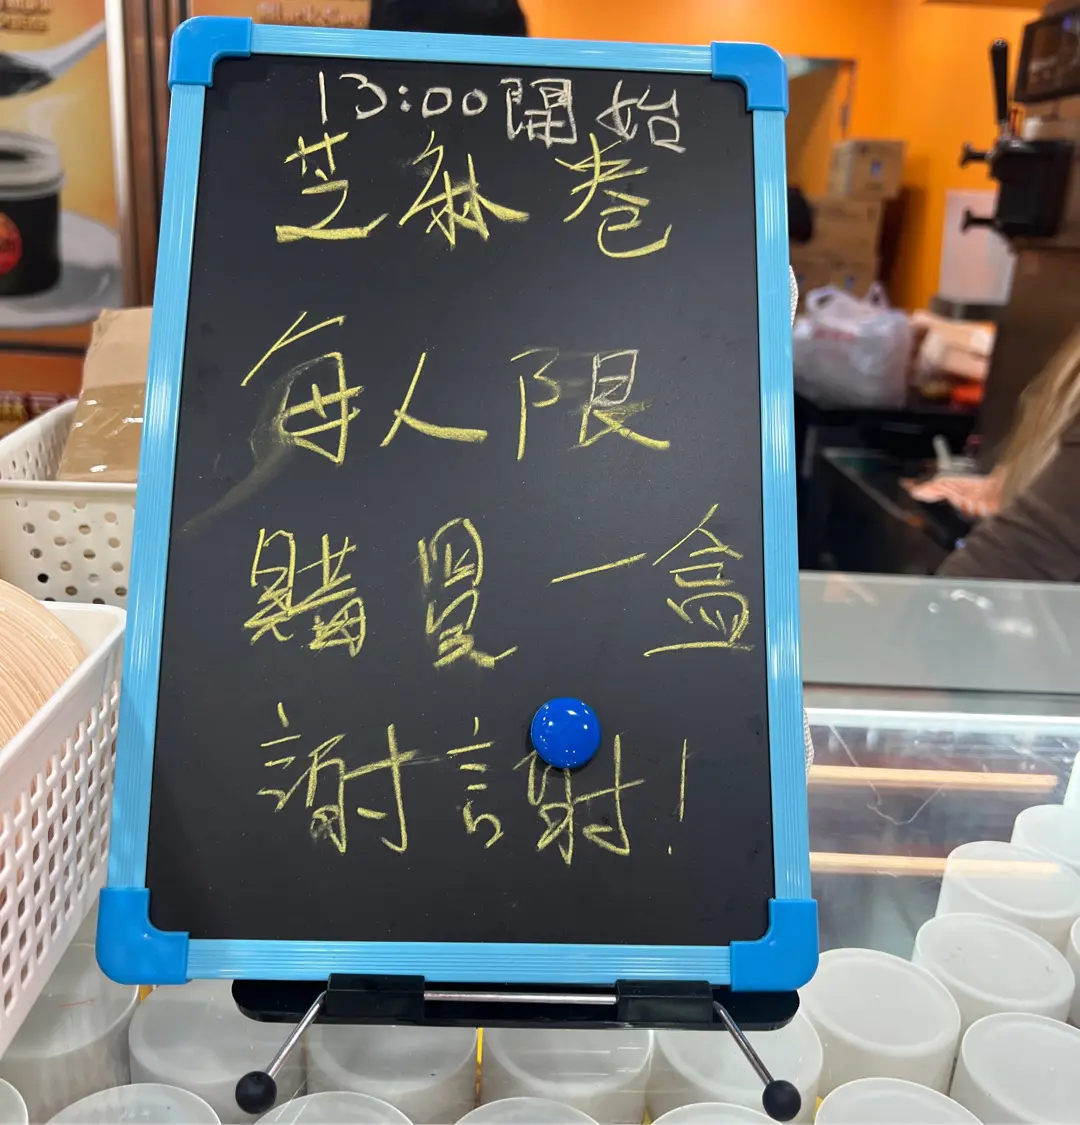 13:00開始
芝麻卷
每人限
購買一盒
謝謝!